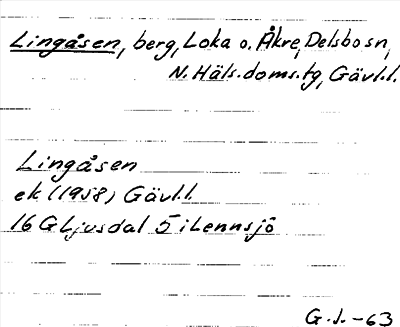 Lingåsen, berg, Loka o. Åkre, Delsbo sn,
N. Häls. doms.tg, Gävl.l.
Lingåsen
ek (1958) Gävl.l.
16 G Ljusdal 5 i Lennsjö
G.J.-63